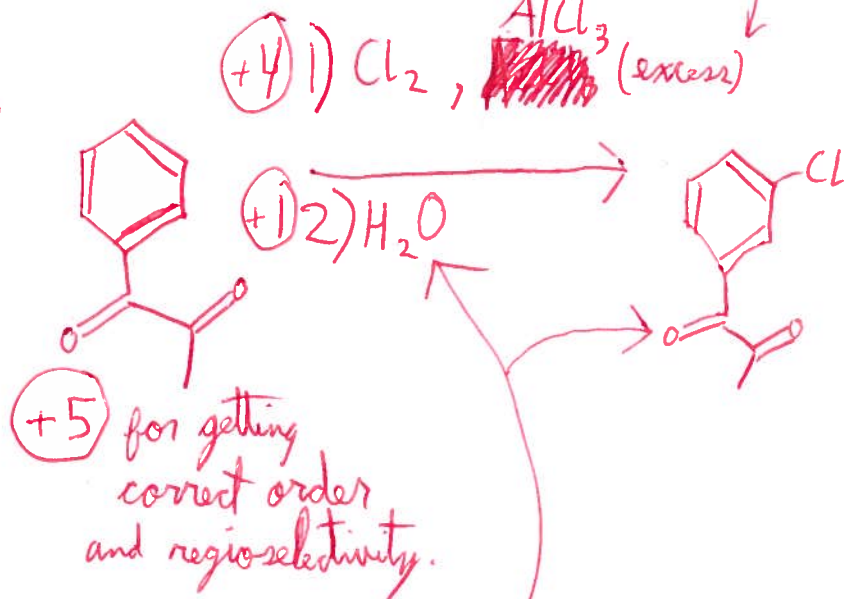 AlCl3
+4 1) Cl2, (excess)
Cl
+1 2) H2O
O O
O O
+5 for getting
correct order
and regioselectivity.